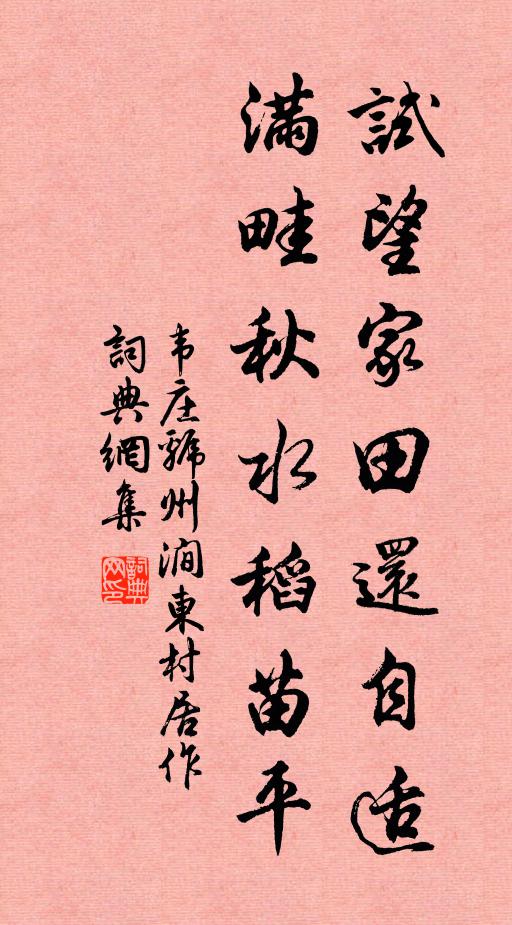 試望家田還自适
滿畦秋水稻苗平
韦庄虢州澗東村居作
詞典網集
詞典网印